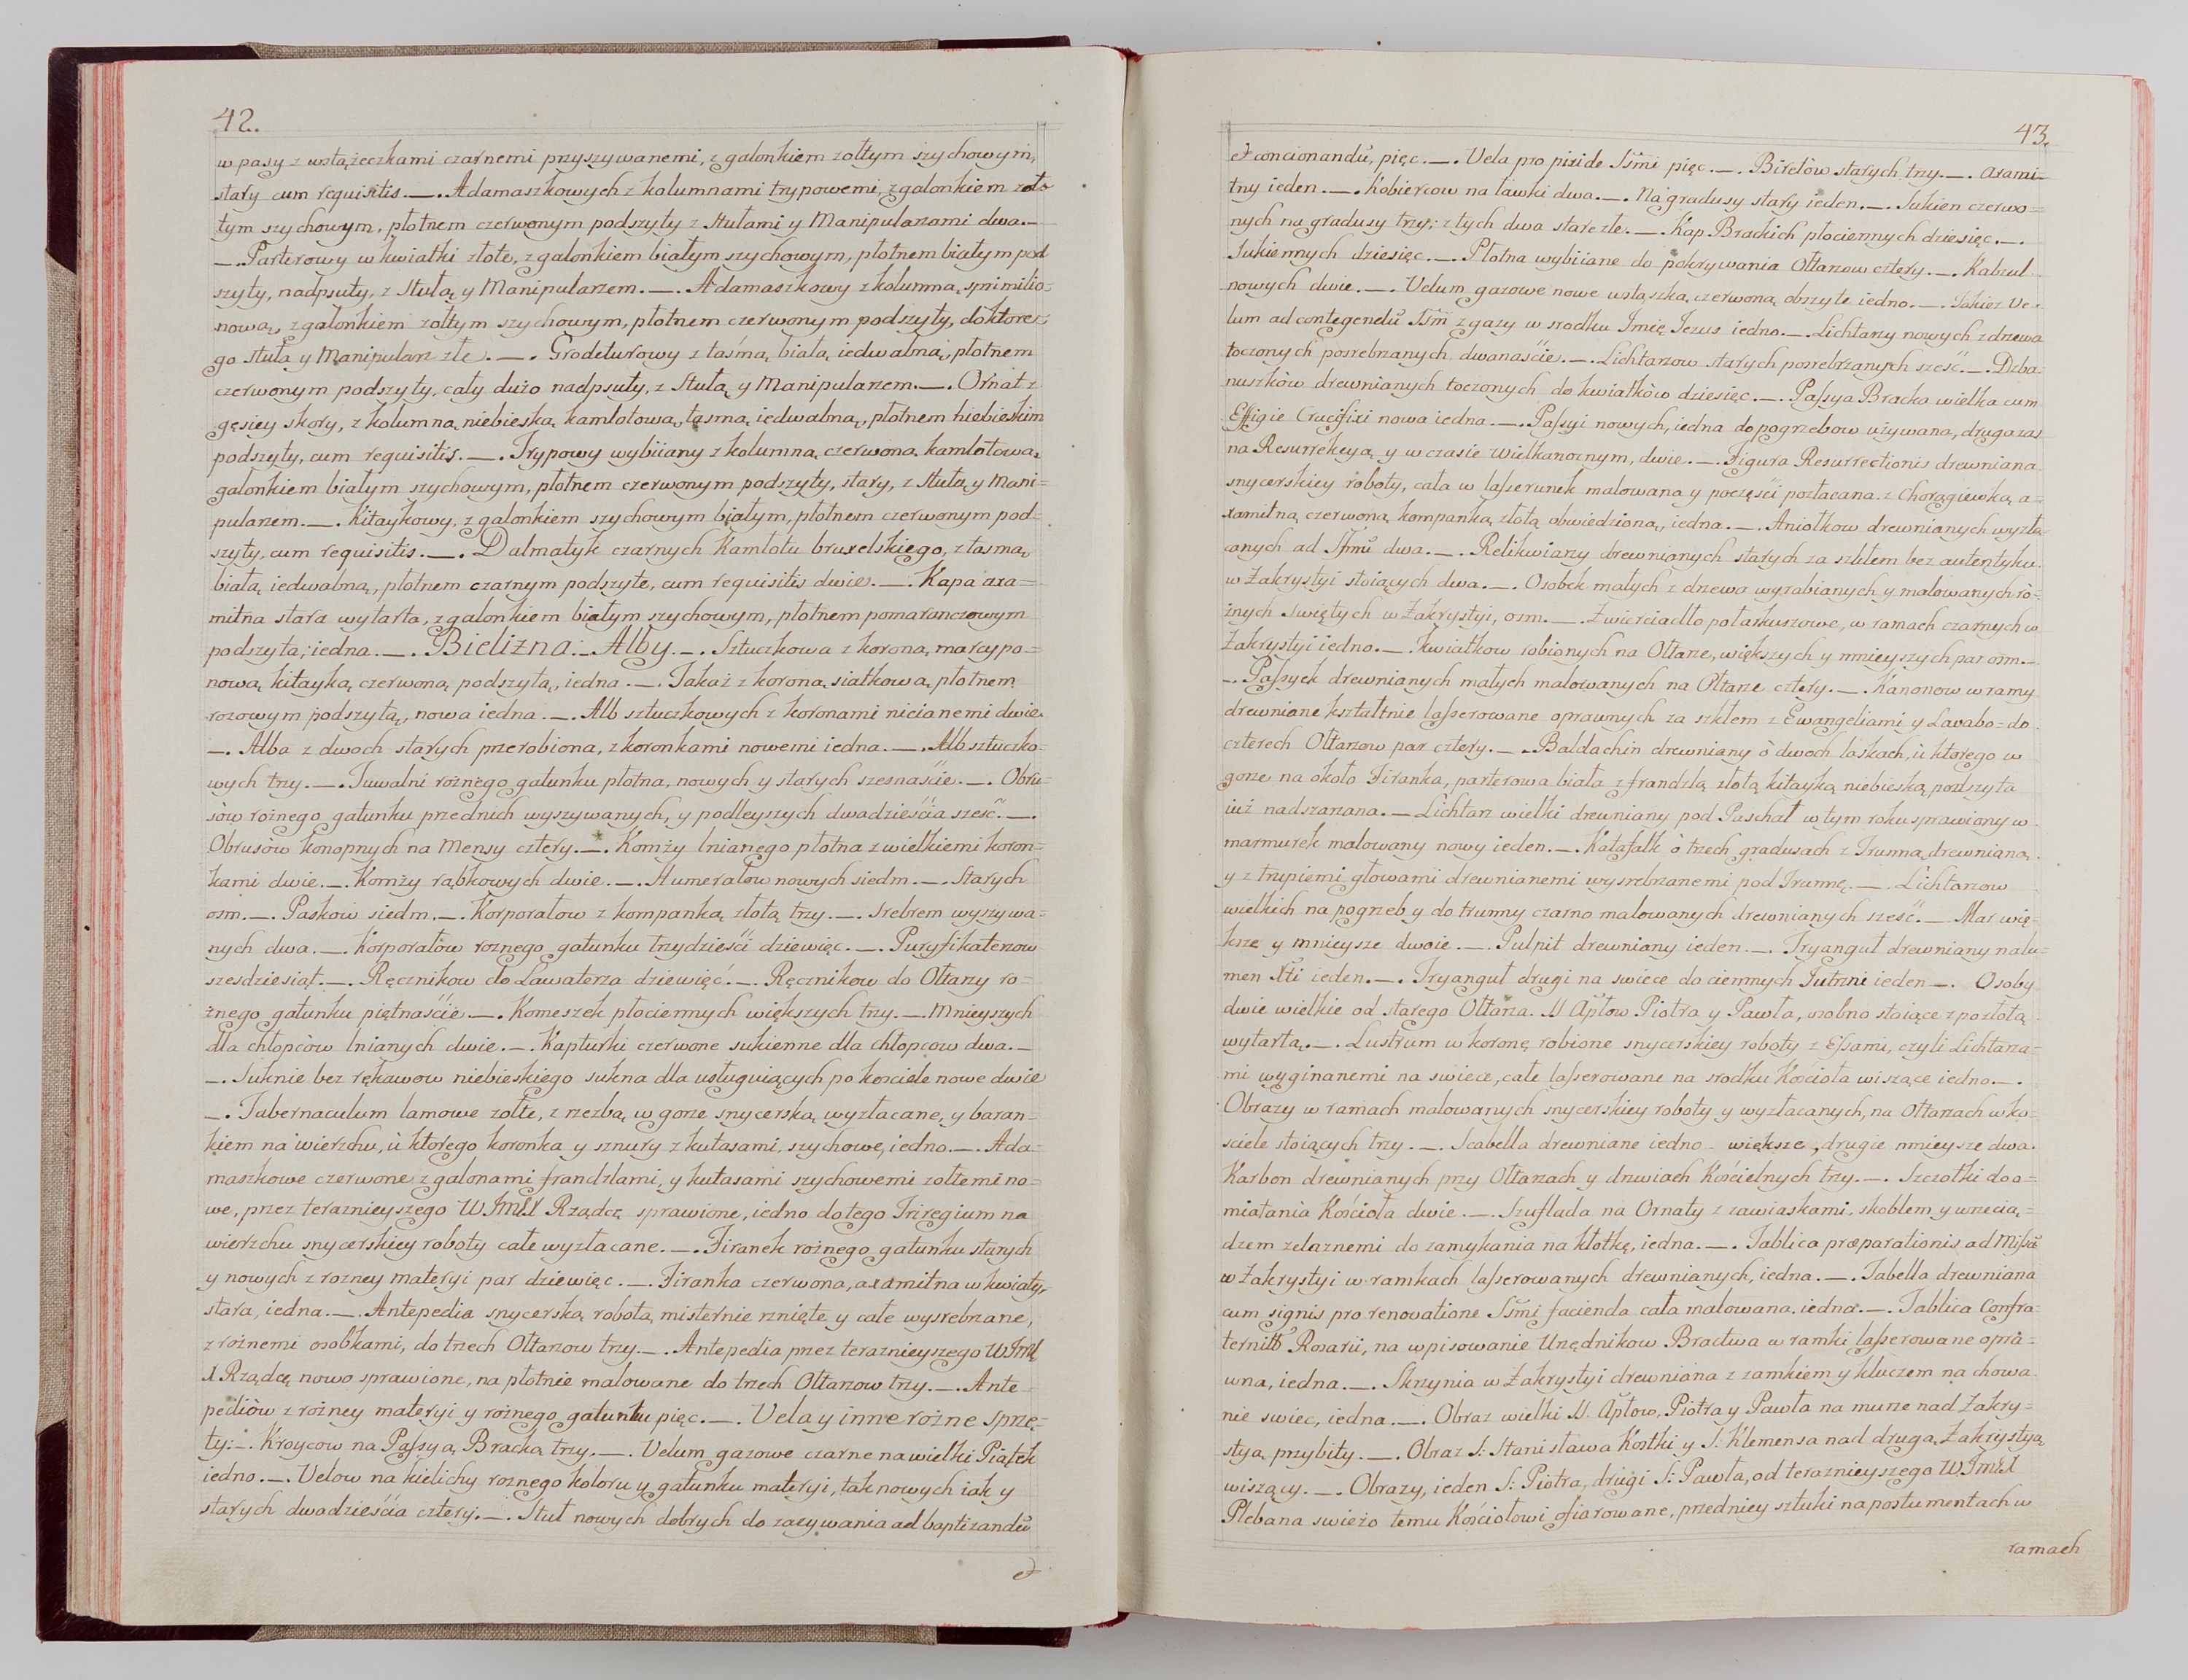 42.
w pasy z wstążeczkami czarnemi przyszywanemi, z galonkiem zołtym szychowym,
stary cum requisitis. —. Adamaszkowych z kolumnami trypowemi, z galonkiem zoł
tym szychowym, płotnem czerwonym podszyty z Stułami y Manipularzami dwa. —
—. Parterowy w kwiatki złote, z galonkiem białym szychowym, płotnem białym pod
szyty, nadpsuty, z Stułą y Manipularzem. —. Adamaszkowy z kolumną sprimilio=
nową, z galonkiem zołtym szychowym, płotnem czerwonym podszyty, do ktore=
go stuła y Manipularz złe. —. Grodeturowy z taśmą białą iedwalną, płotnem
czerwonym podszyty, cały dużo nadpsuty, z Stułą y Manipularzem. —. Ornat z
gęsiey skory, z kolumną niebieską kamlotową, tasmą iedwalną, płotnem niebieskim
podszyty, cum requisitis. —. Trypowy wybiiany z kolumną czerwoną kamlotową,
galonkiem białym szychowym, płotnem czerwonym podszyty, stary, z Stułą y Mani=
pularzem. —. Kitaykowy, z galonkiem szychowym białym, płotnem czerwonym pod=
szyty, cum requisitis. —. Dalmatyk czarnych Kamlotu bruxelskiego, z tasmą
białą iedwalną, płotnem czarnym podszyte, cum requisitis dwie. —. Kapa axa=
mitna stara wytarta, z galonkiem białym szychowym, płotnem pomaranczowym
podszyta, iedna. —. Bielizna. — Alby. —. Sztuczkowa z koroną marcypo=
nową kitayką czerwoną podszytą, iedna. —. Takaż z koroną siatkową płotnem
rozowym podszytą, nowa iedna. —. Alb sztuczkowych z koronami nicianemi dwie.
—. Alba z dwoch starych przerobiona, z koronkami nowemi iedna. —. Alb sztuczko=
wych trzy. —. Tuwalni rożnego gatunku płotna, nowych y starych szesnaście. —. Obru=
sów rożnego gatunku przednich wyszywanych, y podleyszych dwadzieścia sześć. —.
Obrusów konopnych na Mensy cztery. —. Komży lnianego płotna z wielkiemi koron=
kami dwie. —. Komży rąbkowych dwie. —. Humerałow nowych siedm. —. Starych
osm. —. Paskow siedm. —. Korporałow z kompanką złotą trzy. —. Srebrem wyszywa=
nych dwa. —. Korporałów rożnego gatunku trzydzieści dziewięc. —. Puryfikaterzow
szesdziesiąt. —. Ręcznikow do Lawaterza dziewięć. —. Ręcznikow do Ołtarzy ro=
żnego gatunku piętnaście. —. Komeszek płociennych większych trzy. — Mnieyszych
dla chłopców lnianych dwie. —. Kapturki czerwone sukienne dla chłopcow dwa. —
—. Suknie bez rękawow niebieskiego sukna dla usługuiących po kosciele nowe dwie
—. Tabernaculum lamowe zołte, z rzezbą w gorze snycerską wyzłacane, y baran=
kiem na wierzchu, ù ktorego koronka y sznury z kutasami, szychowe, iedno. —. Ada=
maszkowe czerwone z galonami frandzlami, y kutasami szychowemi zołtemi no=
we, przez teraznieyszego WJmX Rządcę sprawione, iedno do tego Triregium na
wierzchu snycerskiey roboty całe wyzłacane. —. Firanek rożnego gatunku starych
y nowych z rozney materyi par dziewięc. —. Firanka czerwona, axamitna w kwiaty,
stara, iedna. —. Antepedia snycerską robotą misternie rznięte y całe wysrebrzane,
z rożnemi osobkami, do trzech Ołtarzow trzy. —. Antepedia przez teraznieyszego WJm
X Rządcę nowo sprawione, na płotnie malowane do trzech Ołtarzow trzy. —. Ante
pediów z rożney materyi y rożnego gatunku pięc. —. Vela y inne rożne sprzę=
ty: —. Kroycow na Passyą Bracką trzy. —. Velum gazowe czarne na wielki Piątek
iedno. —. Velow na kielichy rożnego koloru y gatunku materyi, tak nowych iak y
starych dwadzieścia cztery. —. Stuł nowych dobrych do zazywania ad baptizandũ
et
43.
et concionandũ, pięc. —. Vela pro pixide Ssm̃i pięc. —. Biretów starych trzy. —. axami=
tny ieden. —. Kobiercow na ławki dwa. —. Na gradusy stary ieden. —. Sukien czerwo=
nych na gradusy trzy; z tych dwa stare złe. —. Kap Brackich płociennych dziesięc. —.
Sukiennych dziesięc. —. Płotna wybiiane do pokrywania Ołtarzow cztery. —. Kabzul
nowych dwie. —. Velum gazowe nowe wstąszką czerwoną obszyte iedno. —. Takiez Ve=
lum ad contegendũ Ssm̃ z gazy w srodku Imię Jezus iedno. —. Lichtarzy nowych z drzewa
toczonych posrebrzanych dwanaście. —. Lichtarzow starych posrebrzanych sześć. —. Dzba=
nuszków drewnianych toczonych do kwiatków dziesięc. —. Passya Bracka wielka cum
Effigie Crucifixi nowa iedna. —. Passyi nowych, iedna do pogrzebow używana, druga zas
na Resurrekcyą y w czasie Wielkanocnym, dwie. —. Figura Resurrectionis drewniana
snycerskiey roboty, cała w lasserunek malowana y poczęści pozłacana z Chorągiewką a=
xamitną czerwoną kompanką złotą obwiedzioną, iedna. —. Aniołkow drewnianych wyzła=
canych ad Ssmũ dwa. —. Relikwiarzy drewnianych starych za szkłem bez autentyku
w Zakrystyi stoiących dwa. —. Osobek małych z drzewa wyrabianych y malowanych ró=
żnych Swiętych w Zakrystyi, osm. —. Zwierciadło połarkuszowe, w ramach czarnych w
Zakrystyi iedno. —. Kwiatkow robionych na Ołtarze, większych y mnieyszych par osm. —
—. Passyek drewnianych małych malowanych na Ołtarze cztery. —. Kanonow w ramy
drewniane kształtnie lasserowane oprawnych za szkłem z Ewangeliami y Lavabo = do
czterech Ołtarzow par cztery. —. Baldachin drewniany ò dwoch laskach, ù ktorego w
gorze na około Firanka, parterowa biała z frandzlą złotą kitayką niebieską podszyta
iuż nadszarzana. — Lichtarz wielki drewniany pod Paschał w tym roku sprawiony w
marmurek malowany nowy ieden. —. Katafalk ò trzech gradusach z Trumną drewnianą,
y z trupiemi głowami drewnianemi wysrebrzanemi pod Trumnę. —. Lichtarzow
wielkich na pogrzeb y do trumny czarno malowanych drewnianych sześć. —. Mar wię=
ksze y mnieysze dwoie. —. Pulpit drewniany ieden. —. Tryanguł drewniany na lu=
men Xti ieden. —. Tryanguł drugi na swiece do ciemnych Jutrzni ieden —. Osoby
dwie wielkie od starego Ołtarza SS Aptow Piotra y Pawła, osobno stoiące z pozłotą
wytartą. —. Lustrum w koronę robione snycerskiey roboty z Essami, czyli Lichtarza=
mi wyginanemi na swiece, całe lasserowane na srodku Kościoła wiszące iedno. —.
Obrazy w ramach malowanych snycerskiey roboty y wyzłacanych, na Ołtarzach w ko=
sciele stoiących trzy. —. Scabella drewniane iedno większe, drugie mnieysze dwa.
Karbon drewnianych przy Ołtarzach y drzwiach Kościelnych trzy. —. Szczotki do o=
miatania Kościoła dwie. —. Szuflada na Ornaty z zawiaskami, skoblem y wrzecią=
dzem zelaznemi do zamykania na kłotkę, iedna. —. Tablica præparationis ad Missã
w Zakrystyi w ramkach lasserowanych drewnianych, iedna. —. Tabella drewniana
cum signis pro renovatione Ssm̃i facienda cała malowana, iedna. —. Tablica Confra=
ternitt̃ Rosarii, na wpisowanie Urzędnikow Bractwa w ramki lasserowane opra=
wna, iedna. —. Skrzynia w Zakrystyi drewniana z zamkiem y kluczem na chowa=
nie swiec, iedna. —. Obraz wielki SS Aptow, Piotra y Pawła na murze nad Zakry=
styą przybity. —. Obraz S: Stanisława Kostki y S: Klemensa nad drugą Zakrystyą
wiszący. —. Obrazy, ieden S: Piotra, drugi S: Pawła, od teraznieyszego WJmX
Plebana swieżo temu Kościołowi ofiarowane, przedniey sztuki na postumentach w
ramach